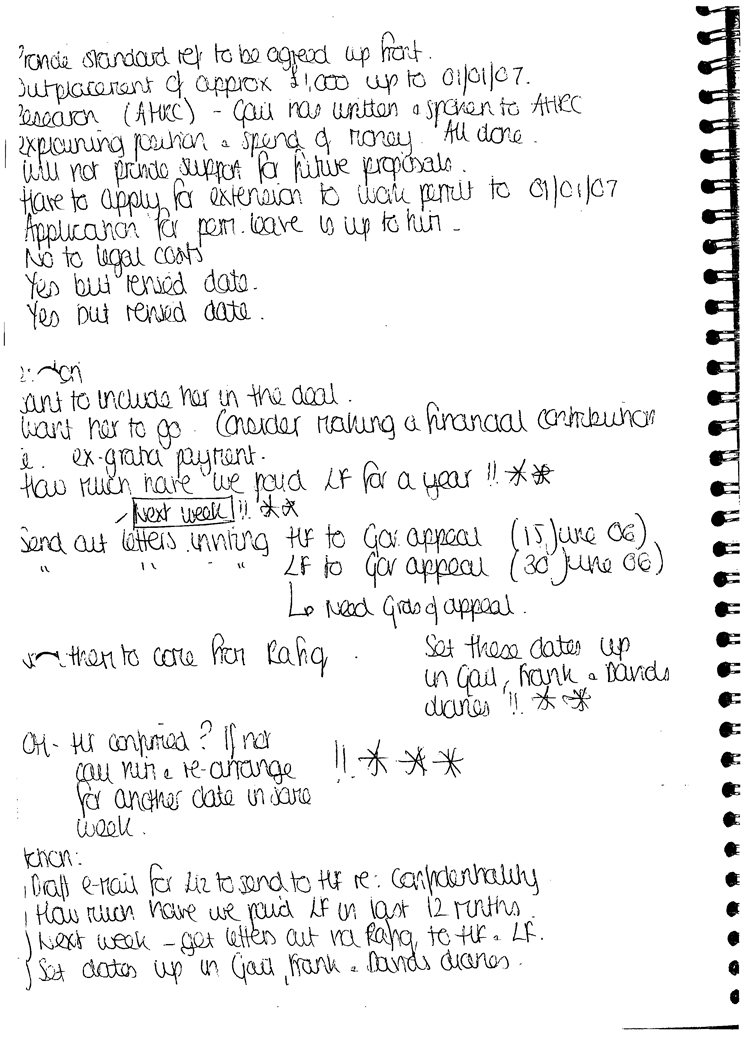 Provide standard ref to be agreed up front.
Outplacement of approx £1,000 up to 01/01/07.
Research (AHRC) - Gail has written & spoken to AHRC
explaining position & spend of money. All done.
Will not provide support for future proposals.
Have to apply for extension to work permit to 01/01/07
Application for perm. leave is up to him -
No to legal costs
Yes but revised date.
Yes but revised date.
want to include her in the deal.
Want her to go. Consider making a financial contribution
ie. ex-gratia payment.
How much have we paid LF for a year !! **
Next week !! **
Send out letters inviting HF to Gov. appeal (15 June 06)
" " " " LF to Gov appeal (30 June 06)
↳ Need Grds of appeal.
them to come from Rafiq.
Set these dates up
in Gail, Frank & Davids
diaries !! **
OH - HF confirmed? If not
call him & re-arrange
for another date in same
week.
!! ***
Action:
Draft e-mail for Liz to send to HF re: Confidentiality
How much have we paid LF in last 12 mnths.
Next week - get letters out via Rafiq to HF & LF.
Set dates up in Gail, Frank & Davids diaries.